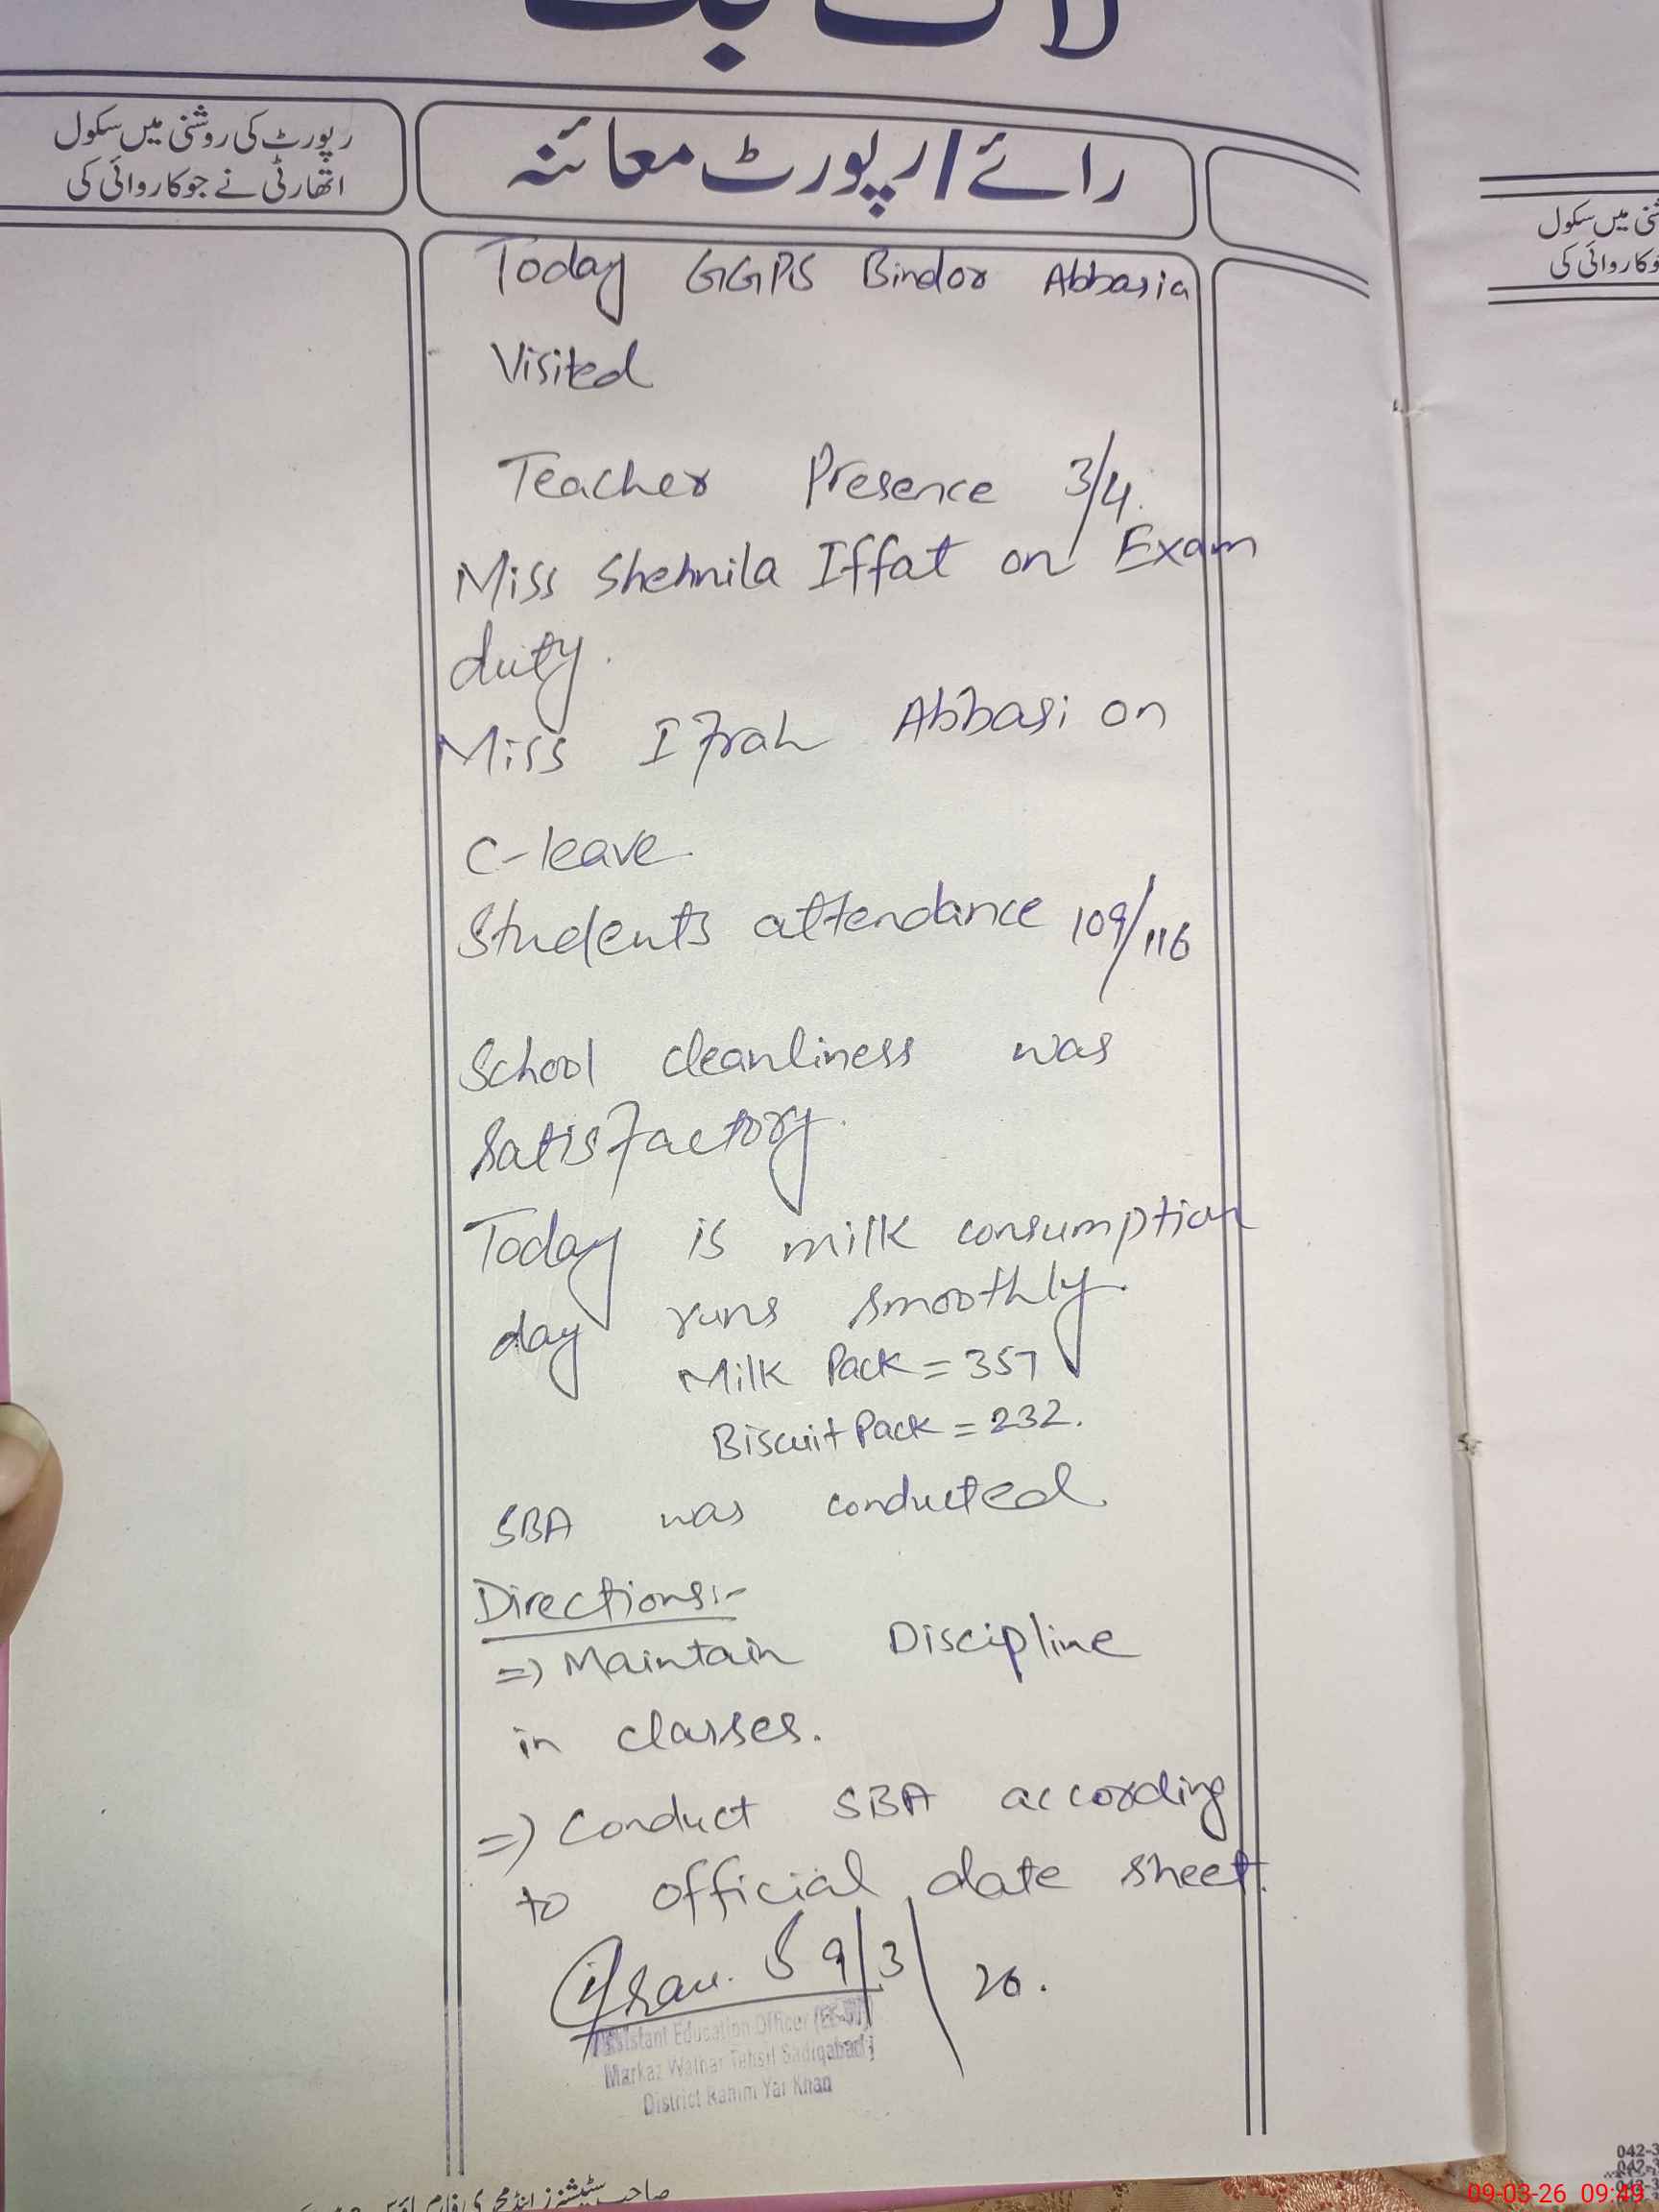 لاگ بک
رپورٹ کی روشنی میں سکول
اتھارٹی نے جو کاروائی کی
رائے/رپورٹ معائنہ
Today GGPS Bindor Abbasia
Visited
Teacher Presence 3/4.
Miss Shehnila Iffat on Exam
duty.
Miss Ifrah Abbasi on
C-leave
Students attendance 109/116
School cleanliness was
Satisfactory.
Today is milk consumption
day runs smoothly.
Milk Pack = 357
Biscuit Pack = 232.
SBA was conducted
Directions:-
=) Maintain Discipline
in classes.
=) Conduct SBA according
to official date sheet.
9/3/26.
Assistant Education Officer
Markaz Tehsil Sadiqabad
District Rahim Yar Khan
میں سکول
کاروائی کی
042-3
09-03-26 09:49